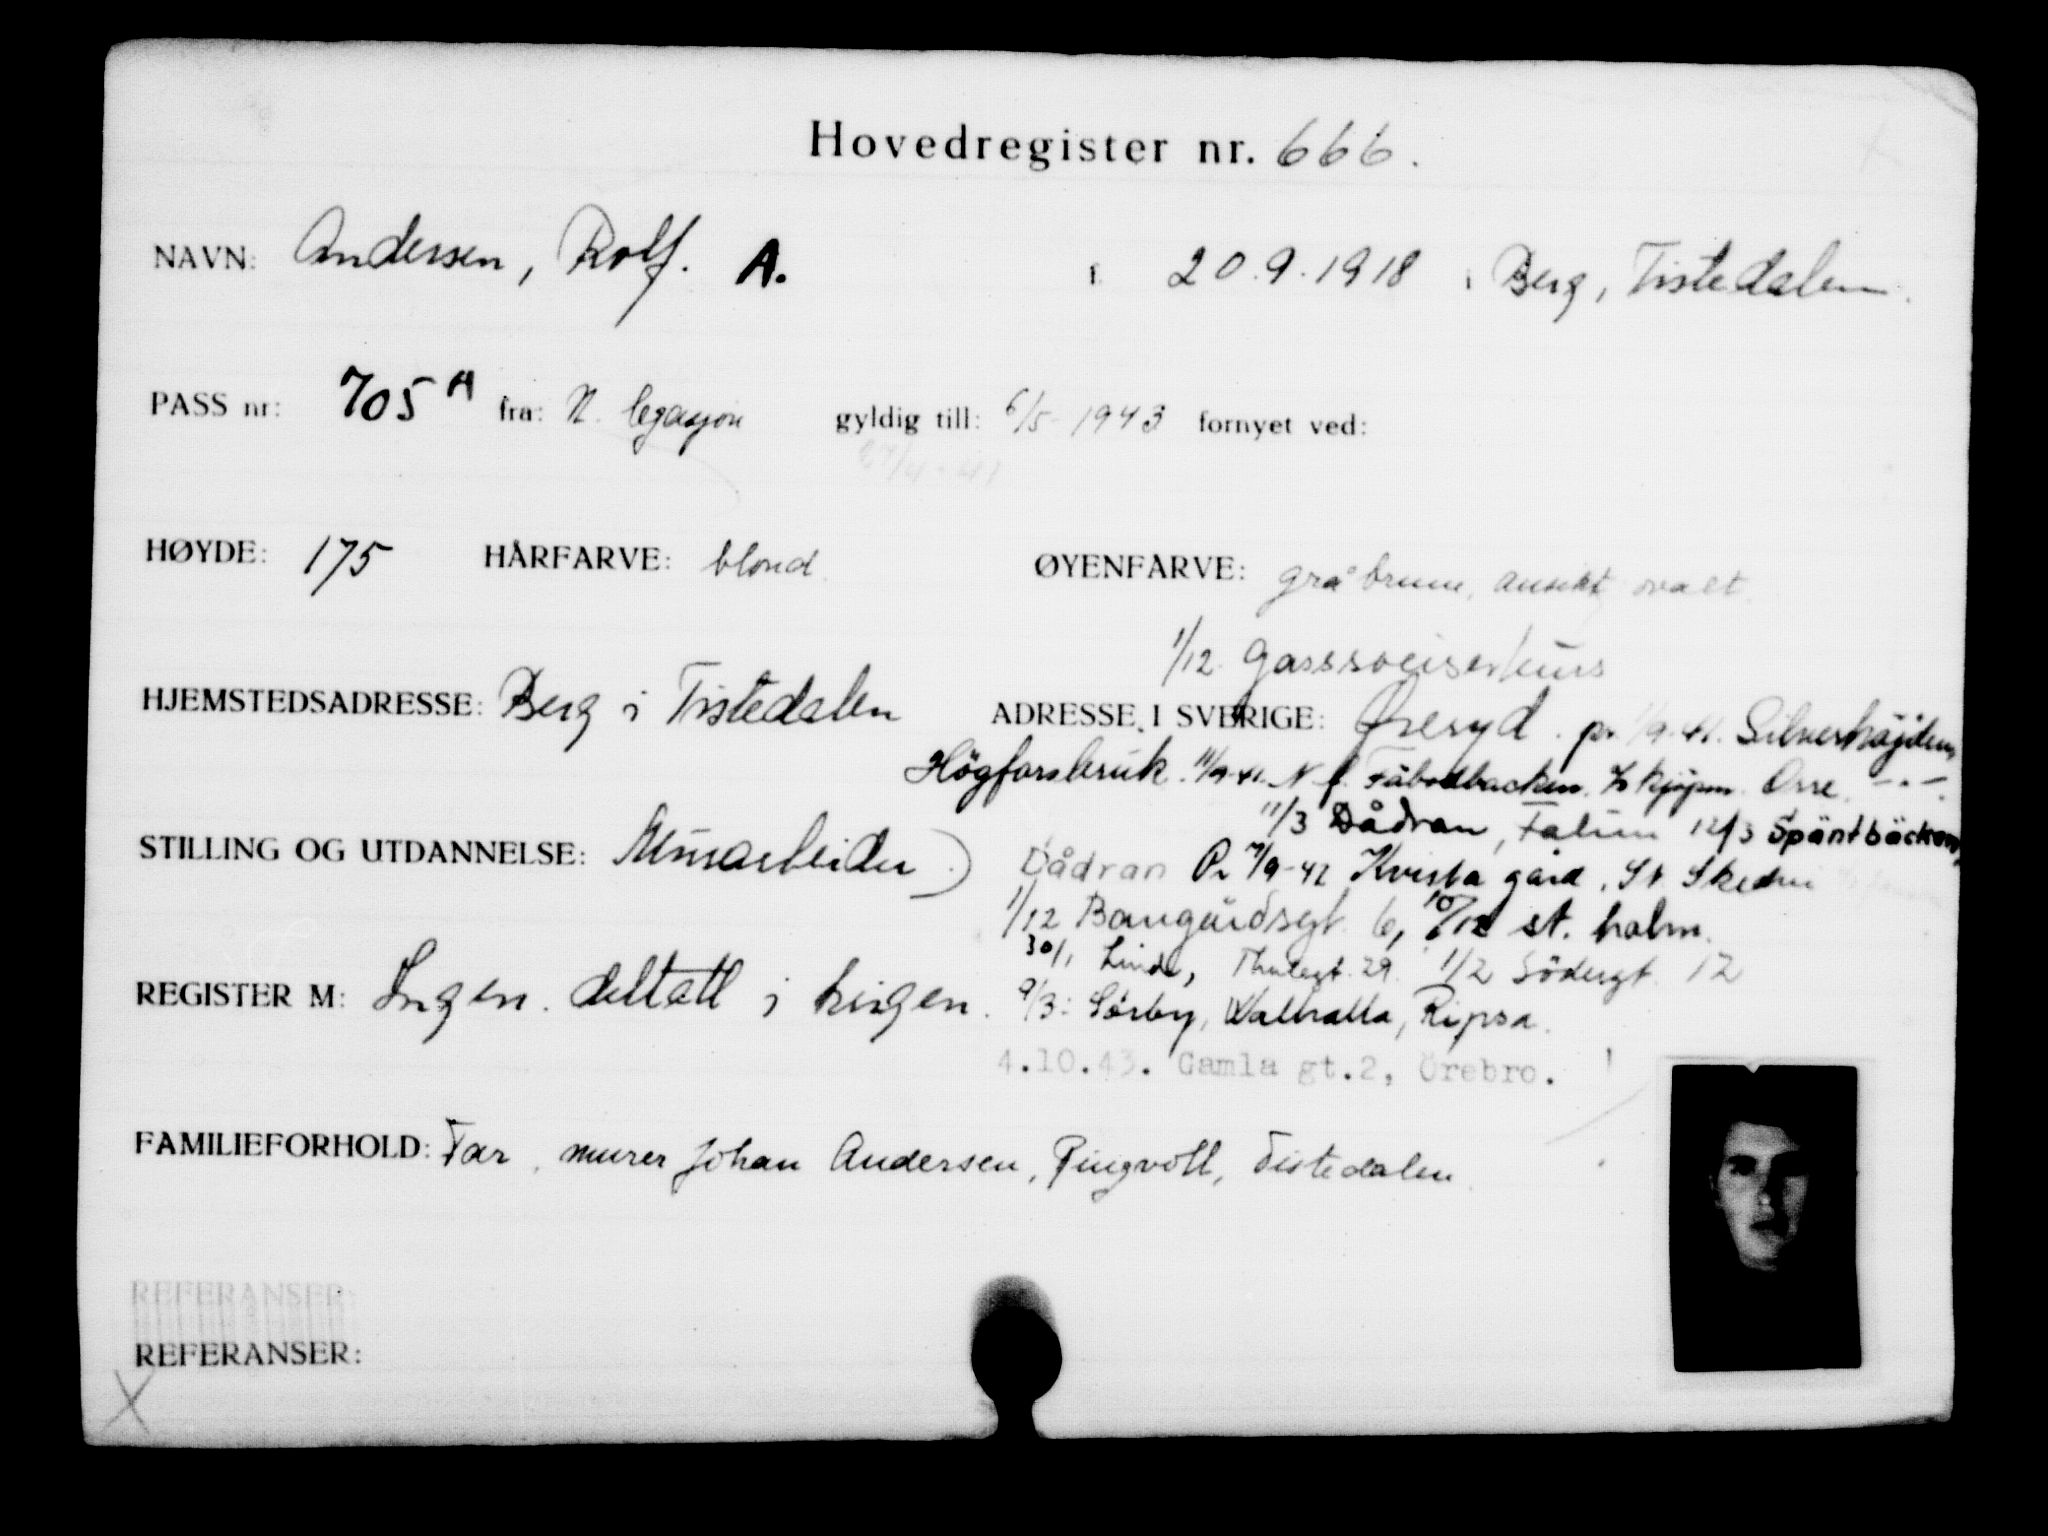 Hovedregister nr. 666.
NAVN: Andersen, Rolf. A. f. 20.9.1918 i Berg, Tistedalen.
PASS nr: 705 A fra: N. legasjon gyldig till: 6/5-1943 fornyet ved:
HØYDE: 175 HÅRFARVE: blond. ØYENFARVE: gråbrune, ansikt ovalt.
1/12. Gasssveiserkurs
HJEMSTEDSADRESSE: Berg i Tistedalen ADRESSE I SVERIGE: Øreryd. pr. 1/9-41. Silverhöjden,
Högforsbruk. 11/9-41. N. f. Fäbodbacken.
11/3 Dådran, Falun 12/3 Späntbäcken,
STILLING OG UTDANNELSE: Murarbeider) Dådran Pr 7/9-42 Kvista gård, St. Skedvi
1/12 Bangårdsgt. 6, 10/12 st. holm.
30/1 Linde, Thulegt. 29. 1/2 Södergt. 12
REGISTER M: Ingen. deltatt i krigen. 9/3: Sörby, Walhalla, Ripsa.
4.10.43. Gamla gt.2, Örebro.
FAMILIEFORHOLD: Far, murer Johan Andersen, Ringvoll, Tistedalen.
REFERANSER:
REFERANSER:
X